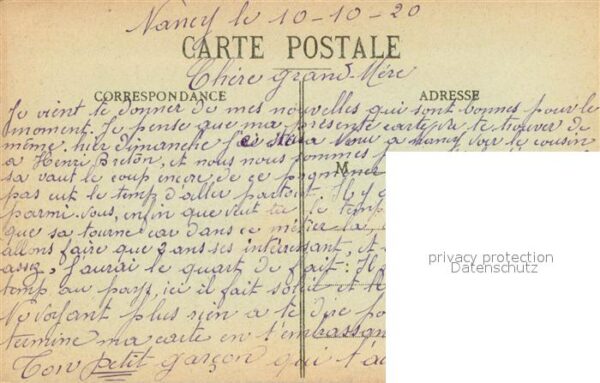 Nancy le 10-10-20
CARTE POSTALE
Chère grand-Mère
CORRESPONDANCE
ADRESSE
Je vient te donner de mes nouvelles qui sont bonnes pour le
moment. Je pense que ma présente carte te trouver de
même, hier dimanche venu a nancy voir le cousin
a Henri Breton, et nous nous sommes
sa vaut le coup encore, de ce
M
pas eut le temps d'aller partout. Il y
parmi vous, enfin que veut tu le temp
que sa tourne car dans ce métier la,
allons faire que 2 ans ses intéressant, et
assez, J'aurai le quart de fait: Il
temp au pays, ici il fait soleil et
Ne voyant plus rien a te dire po
termine ma carte en t'embrassan
Ton petit garçon qui t'a
privacy protection
Datenschutz